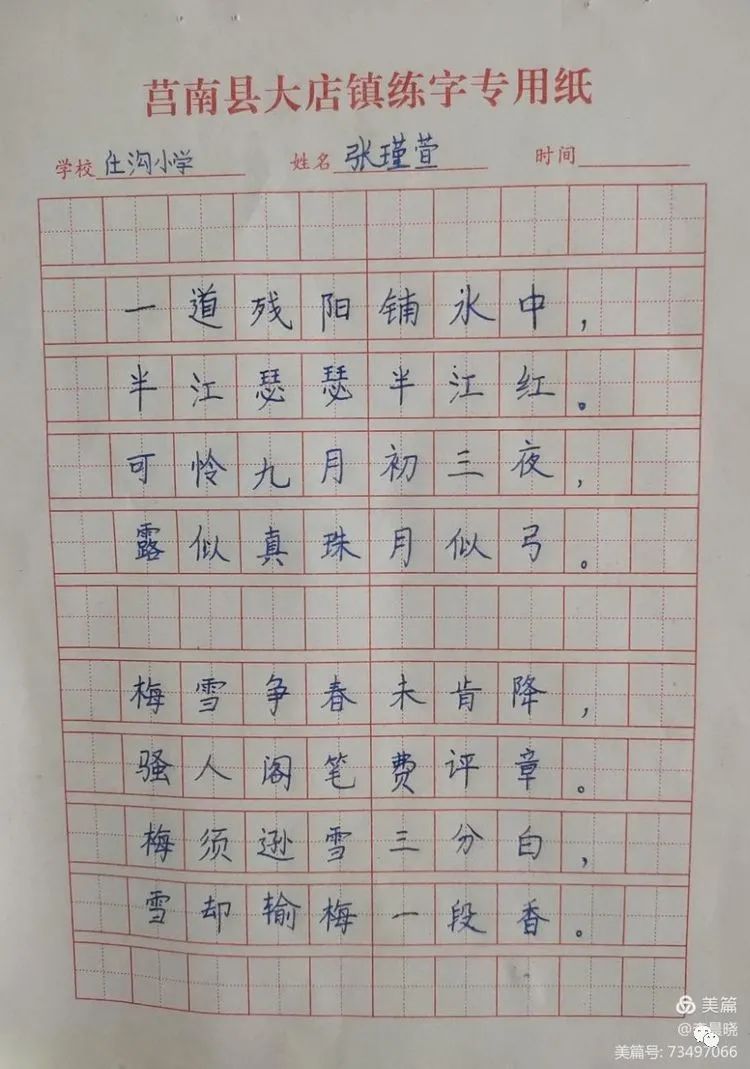 莒南县大店镇练字专用纸
学校 仕沟小学 姓名 张瑾萱 时间
一道残阳铺水中，
半江瑟瑟半江红。
可怜九月初三夜，
露似真珠月似弓。
梅雪争春未肯降，
骚人阁笔费评章。
梅须逊雪三分白，
雪却输梅一段香。
美篇
晨晓
美篇号: 73497066